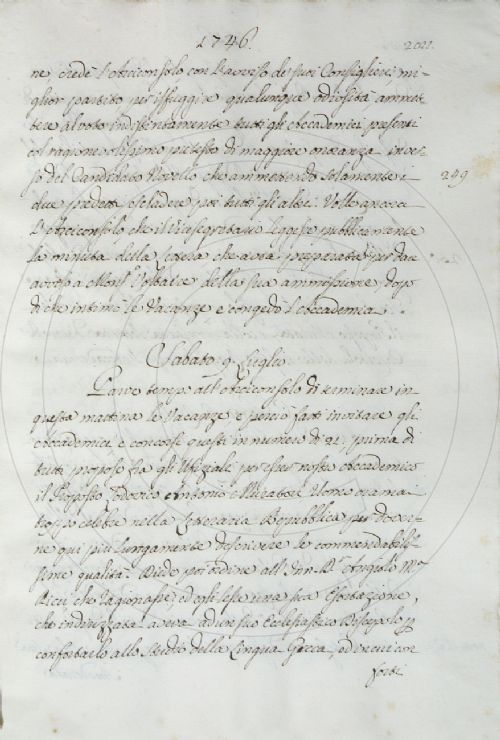 1746.
202.
ne, credè l'Arciconsolo con l'avviso de suoi Consiglieri, mi-
glior partito per isfuggire qualunque odiosità ammet-
tere al voto indistintamente tutti gli Accademici presenti
col ragionevolissimo pretesto di maggiore onoranza inver-
so del Candidato Novello che ammettendo solamente i
249
due predetti escludere poi tutti gli altri. Volle ancora
l'Arciconsolo che il Vicesegretario leggesse pubblicamente
la minuta della lettera che aveva preparata per dare
avviso a Mons.r Voltaire della sua ammissione, dopo
di che intimò le Vacanze e congedò l'Accademia.
Sabato 9. Luglio.
Parve tempo all'Arciconsolo di terminare in
questa mattina le Vacanze e perciò fatti invitare gli
Accademici e concorsi questi in numero di 21. prima di
tutti propose fra gli Ufiziali per esser nostro Accademico
il Proposto Lodovico Antonio Muratori Uomo oramai
troppo celebre nella Letteraria Repubblica per dover-
ne qui più lungamente descrivere le commendabilis-
sime qualità. Diede poi ordine all' Angiolo M.a
Ricci che ragionasse, ed egli lesse una sua Esortazione,
che indirizzata aveva ad un suo Ecclesiastico Discepolo p
confortarlo allo Studio della Lingua Greca, ed in cui con
forti